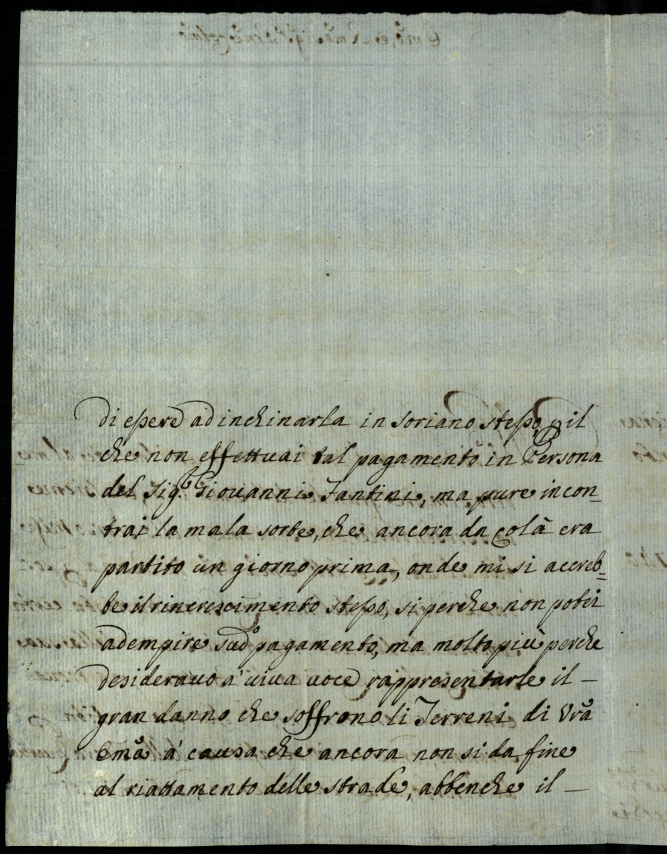 di essere ad inchinarla in Soriano stesso, p il
che non effettuai tal pagamento in Persona
del Sig.r Giovanni Fantini, ma pure incon-
trai la mala sorte, che ancora da colà era
partito un giorno prima, onde mi si accreb=
be il rincrescimento stesso, si perche non potei
adempire sud.o pagamento, ma molto più perche
desideravo a' viva voce rappresentarle il –
gran danno che soffrono li Terreni di Vrã
Emã a' causa che ancora non si da fine
al riattamento delle strade, abbenche il –